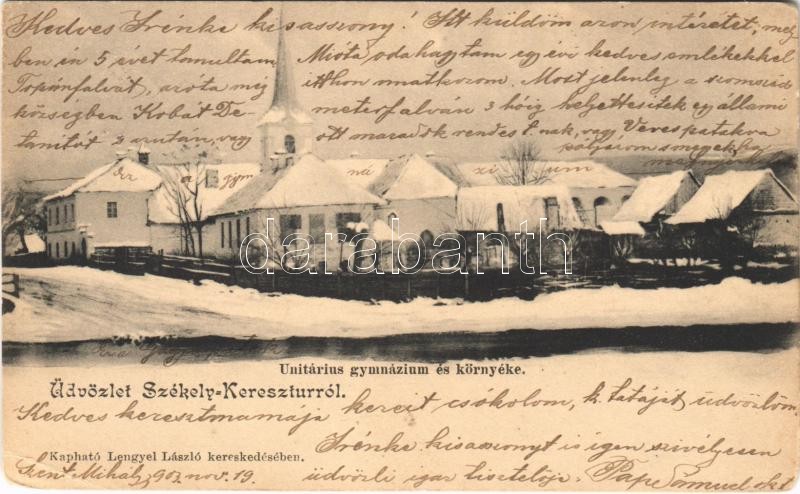 Kedves Irénke kisasszony! Itt küldöm azon intézetet, mely
ben én 5 évet tanultam Mióta odahagytam egy évi kedves emlékekkel
Topánfalvát, azóta még itthon unatkozom. Most jelenleg a szomszéd
községben Kobát De- meterfalván 3 hóig helyettesitek egy állami
tanitót azután, vagy ott maradok rendes t.nak, vagy Verespatakra
pályázom s megyek
Ez a gym ná zi um
darabanth
Unitárius gymnázium és környéke.
Üdvözlet Székely-Kereszturról.
Kedves keresztmamája kezeit csókolom, k. tatáját üdvözlöm
Irénke kisasszonyt is igen szivélyesen
Kapható Lengyel László kereskedésében.
Szent Mihály 903 nov. 19. üdvözli igaz tisztelője Pap Sámuel okt